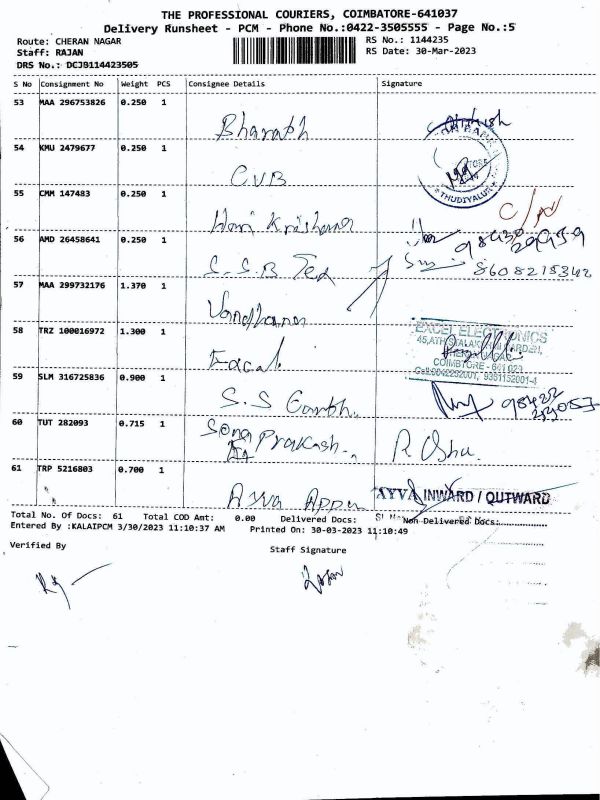 THE PROFESSIONAL COURIERS, COIMBATORE-641037
Delivery Runsheet - PCM - Phone No.:0422-3505555 - Page No.:5
Route: CHERAN NAGAR RS No.: 1144235
Staff: RAJAN RS Date: 30-Mar-2023
DRS No.: DCJB114423505
S No Consignment No Weight PCS Consignee Details Signature
53 MAA 296753826 0.250 1
Bharath
54 KMU 2479677 0.250 1
CUB
THUDIYALUR
55 CMM 147483 0.250 1
Hari Krishana
56 AMD 26458641 0.250 1
S.S.B Tex 8608215342
57 MAA 299732176 1.370 1
Vandhana
58 TRZ 100016972 1.300 1
EXCEL ELECTRONICS
COIMBTORE - 641 023
59 SLM 316725836 0.900 1
S.S
60 TUT 282093 0.715 1
Sona Prakash R. Usha.
61 TRP 5216803 0.700 1
AYVA INWARD / OUTWARD
Total No. Of Docs: 61 Total COD Amt: 0.00 Delivered Docs: Non Delivered Docs:
Entered By :KALAIPCM 3/30/2023 11:10:37 AM Printed On: 30-03-2023 11:10:49
Verified By Staff Signature